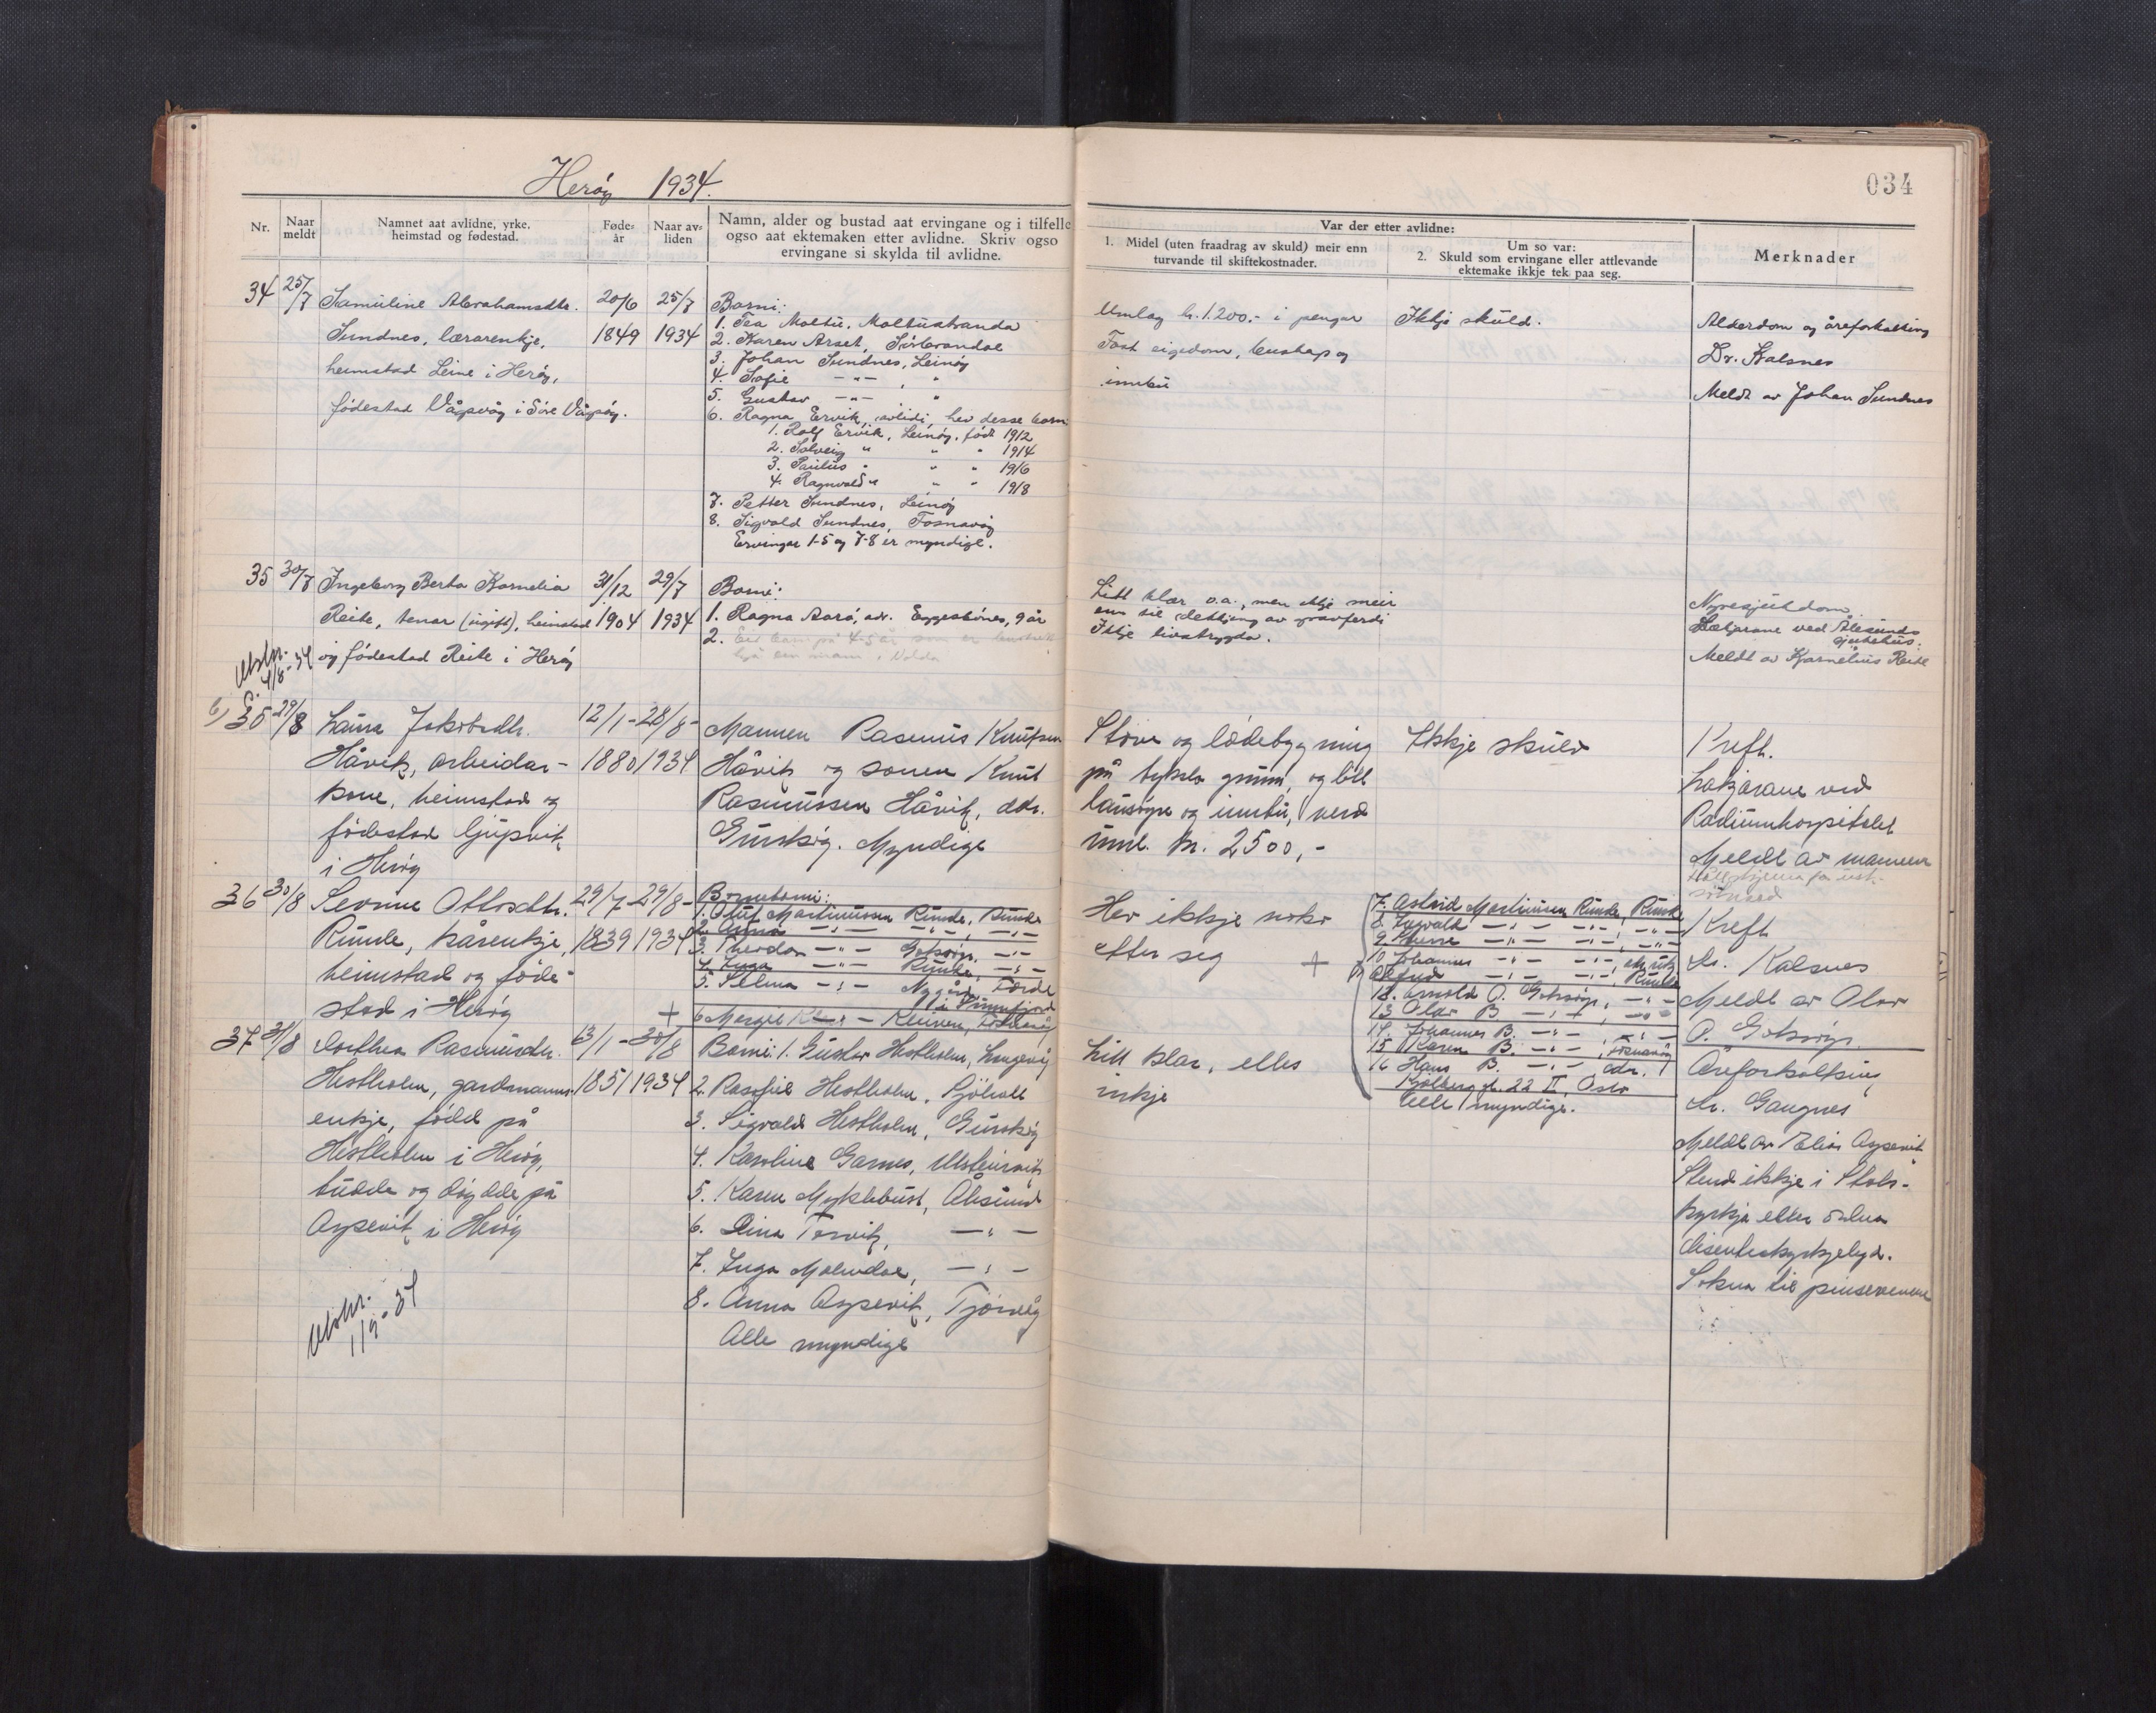 Herøy 1934.
034
Nr.
Naar meldt
Namnet aat avlidne, yrke.
heimstad og fødestad.
Føde-
år
Naar av-
liden
Namn, alder og bustad aat ervingane og i tilfelle
ogso aat ektemaken etter avlidne. Skriv ogso
ervingane si skylda til avlidne.
Var der etter avlidne:
1. Midel (uten fraadrag av skuld) meir enn
turvande til skiftekostnader.
Um so var:
2. Skuld som ervingane eller attlevande
ektemake ikkje tek paa seg.
Merknader
34 25/7 Samuline Abrahamsdtr.
Sundnes, lærarenkje,
heimstad Leine i Herøy,
fødestad Vågsvåg i Søre Vågsøy.
20/6
1849
25/7
1934
Borni:
1. Tea Moltu, Moltustranda
2. Karen Arset, Sørbrandal
3. Johan Sundnes, Leinøy
4. Sofie —"— , "
5. Gustav —"— "
6. Ragna Ervik, avlidi, hev desse born
1. Rolf Ervik, Leinøy, født 1912
2. Solveig " " " 1914
3. Paulus " " " 1916
4. Ragnvald " " " 1918
7. Petter Sundnes, Leinøy
8. Sigvald Sundnes, Fosnavåg
Ervingar 1-5 og 7-8 er myndige.
Umlag kr. 1.200.- i pengar
Fast eigedom, buskap og
innbu
Ikkje skuld.
Alderdom og åreforkalking
Dr. Kalsnes
Meldt av Johan Sundnes
35 30/7 Ingeborg Berta Kornelia
Reite, tenar (ugift), heimstad
og fødestad Reite i Herøy
31/12
1904
29/7
1934
Borni:
1. Ragna Aarø, adr. Eggesbönes, 9 år
2. Eit barn på 4-5 år som er
hjå ein mann i Volda
Litt klær o.a., men ikkje meir
enn til dekkjing av gravferdi
Ikkje livstrygda.
Nyresjukdom
Lækjarane ved Ålesunds
sjukehus.
Meldt av Kornelius Reite
Utskr.
4/8-34
6) 35 29/8 Laura Jakobsdtr.
Håvik, arbeidar-
kone, heimstad og
fødestad Gjupvik
i Herøy
12/1-
1880
28/8-
1934
Mannen Rasmus Knutsen
Håvik og sonen Knut
Rasmussen Håvik, adr.
Gurskøy. Myndige
Stove og lödebygning
på bykla grunn, og litt
lausøyre og innbu, verd
uml. kr. 2500,-
Ikkje skuld
Kreft.
Lækjarane ved
Radiumhospitalet
Meldt av mannen
36 30/8 Sevrine Ottosdtr.
Runde, kårenkje,
heimstad og føde-
stad i Herøy
29/7-
1839
29/8-
1934
Borneborni:
1. Oluf Martinussen Runde, Runde
2. Anna —"— —"—, —"—
3. Theodor —"— Goksøyr, —"—
4. Inga —"— Runde, —"—
5. Selma —"— Nygård, Førde
i Sunnfjord
+ 6 Margit —"— Kleiven,
Hev ikkje noko
etter seg
+
7. Astrid Martinussen Runde, Runde
8. Ingvald —"— —"—, —"—
9. —"— —"—, —"—
10. Johannes —"— —"—,
11. Alfred —"— —"—, Runde
12. Arnold O. Goksøyr, —"—
13 Olav B —"—, —"—
14. Johannes B. —"—, —"—
15 Karen B. —"—, Fosnavåg
16 Hans B. —"— adr.
Kjölberg gt. 22 II, Oslo
Alle myndige.
Kreft
Dr. Kalsnes
Meldt av Olav
O. Goksøyr.
37 31/8 Dorthea Rasmusdtr.
Hestholm, gardmanns-
enkje, född på
Hestholm i Herøy,
budde og döydde på
Aspevik i Herøy
13/1-
1851
30/8
1934
Borni: 1. Gustav Hestholm, Langevåg
2. Rasofie Hestholm, Sjöholt
3. Sigvald Hestholm, Gurskøy
4. Karoline Garnes, Ulsteinvik
5. Karen Myklebust, Ålesund
6. Lina Torvik, —"—
7. Inga Molvdal, —"—
8. Anna Aspevik, Tjørvåg
Alle myndige
Litt klær, elles
inkje
Åreforkalking
Dr. Gangnes
Meldt av Elias Aspevik
Stend ikkje i Stats-
kyrkja eller onnor
disentarkyrkjelyd.
Sokna til pinsevenene
Utskr.
1/9-34